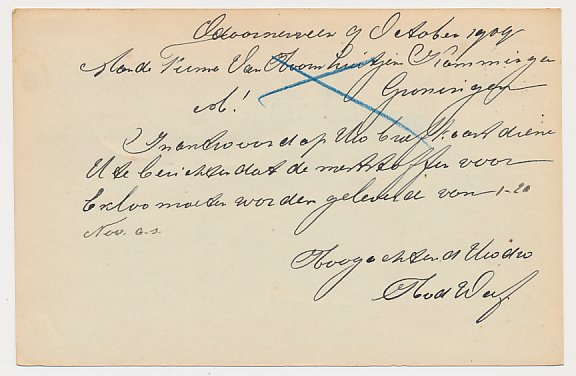 Odoornerveen 9 October 1909
Aan de Firma Van Hoorn Luitjen Kamminga
Groningen
M!
In antwoord op Uw briefkaart diene
U te berichten dat de meststoffen voor
Exloo moeten worden geleverd van 1-20
Nov. a.s.
Hoogachtend Uwdw